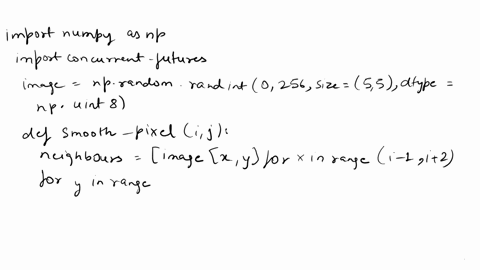 import numpy as np
import concurrent.futures
image = np.random.randint (0, 256, size = (5,5), dtype =
np.uint 8)
def smooth_pixel (i,j):
neighbours = [image [x,y] for x in range (i-1, i+2)
for y in range